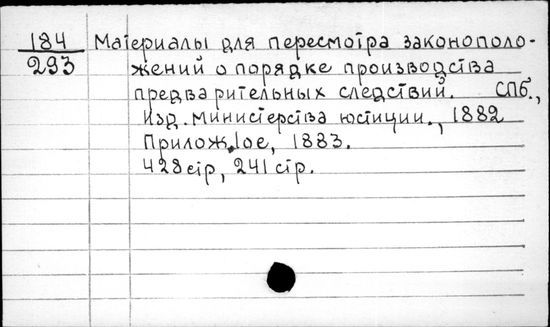 184 Материалы для пересмотра законополо-
293 жений о порядке производства
предварительных следствий. СПб.,
изд. министерства юстиции., 1882
Прилож. 1ое, 1883.
428 стр, 241 стр.